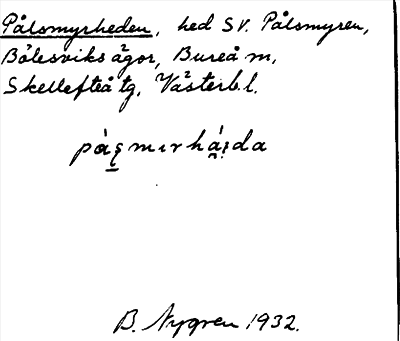 Pålsmyrheden, hed SV. Pålsmyren,
Bölesviks ägor, Bureå m,
Skellefteå tg, Västerb.l.
B. Nygren 1932.